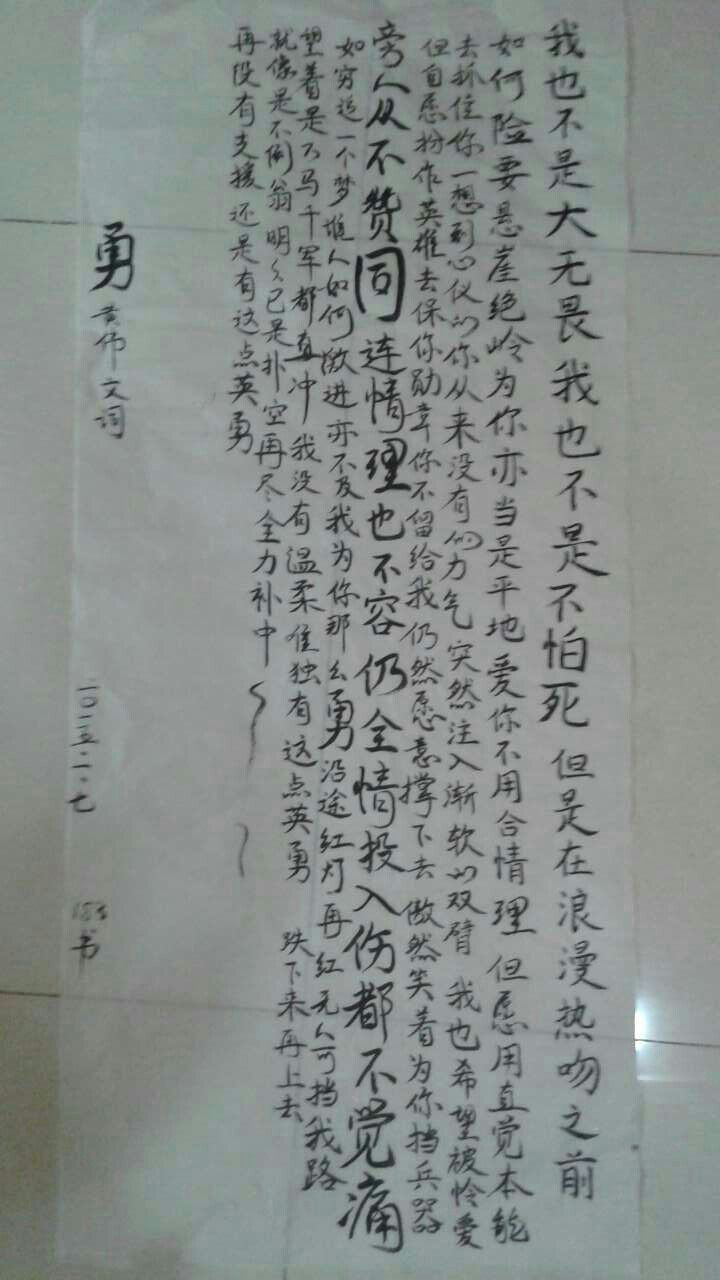 我也不是大无畏我也不是不怕死但是在浪漫热吻之前
如何险要悬崖绝岭为你亦当是平地爱你不用合情理但愿用直觉本能
去抓住你一想到心仪的你从来没有的力气突然注入渐软的双臂我也希望被怜爱
但自愿扮作英雄去保你勋章你不留给我仍然愿意撑下去傲然笑着为你挡兵器
旁人从不赞同连情理也不容仍全情投入伤都不觉痛
如穷追一个梦谁人如何激进亦不及我为你那么勇沿途红灯再红无人可挡我路
望着是万马千军都直冲我没有温柔唯独有这点英勇跌下来再上去
就像是不倒翁明明已是扑空再尽全力补中
再没有支援还是有这点英勇
勇
黄伟文词
二〇一五·二·七
书